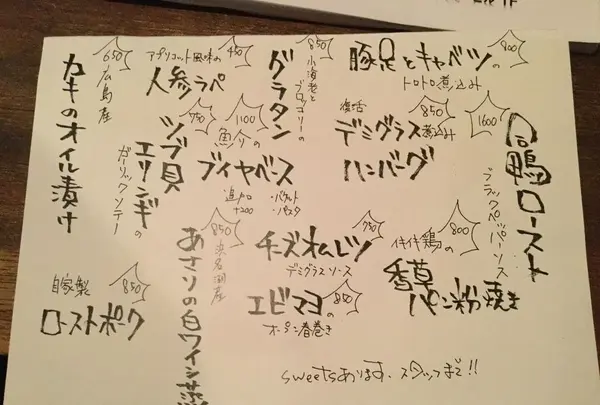 650
広島産
カキのオイル漬け
アプリコット風味の
450
人参ラペ
850
小海老と
ブロッコリーの
グラタン
900
豚足とキャベツの
トロトロ煮込み
750
ツブ貝
エリンギの
ガーリックソテー
1100
魚介の
ブイヤベース
追加
+200
・バケット
・パスタ
復活
850
デミグラス煮込み
ハンバーグ
1600
合鴨ロースト
ブラックペッパーソース
850
浜名湖産
あさりの白ワイン蒸
750
チーズオムレツ
デミグラスソース
イキイキ鶏の
800
香草
パン粉焼き
自家製
850
ローストポーク
エビマヨの
オープン春巻き
sweetsあります. スタッフまで!!